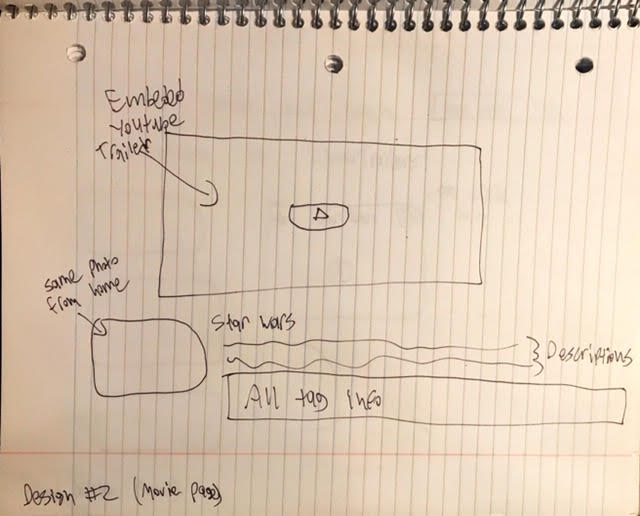 Embeded
Youtube
Trailer
same photo
from home
Star wars
Descriptions
All tag info
Design #2 (Movie page)